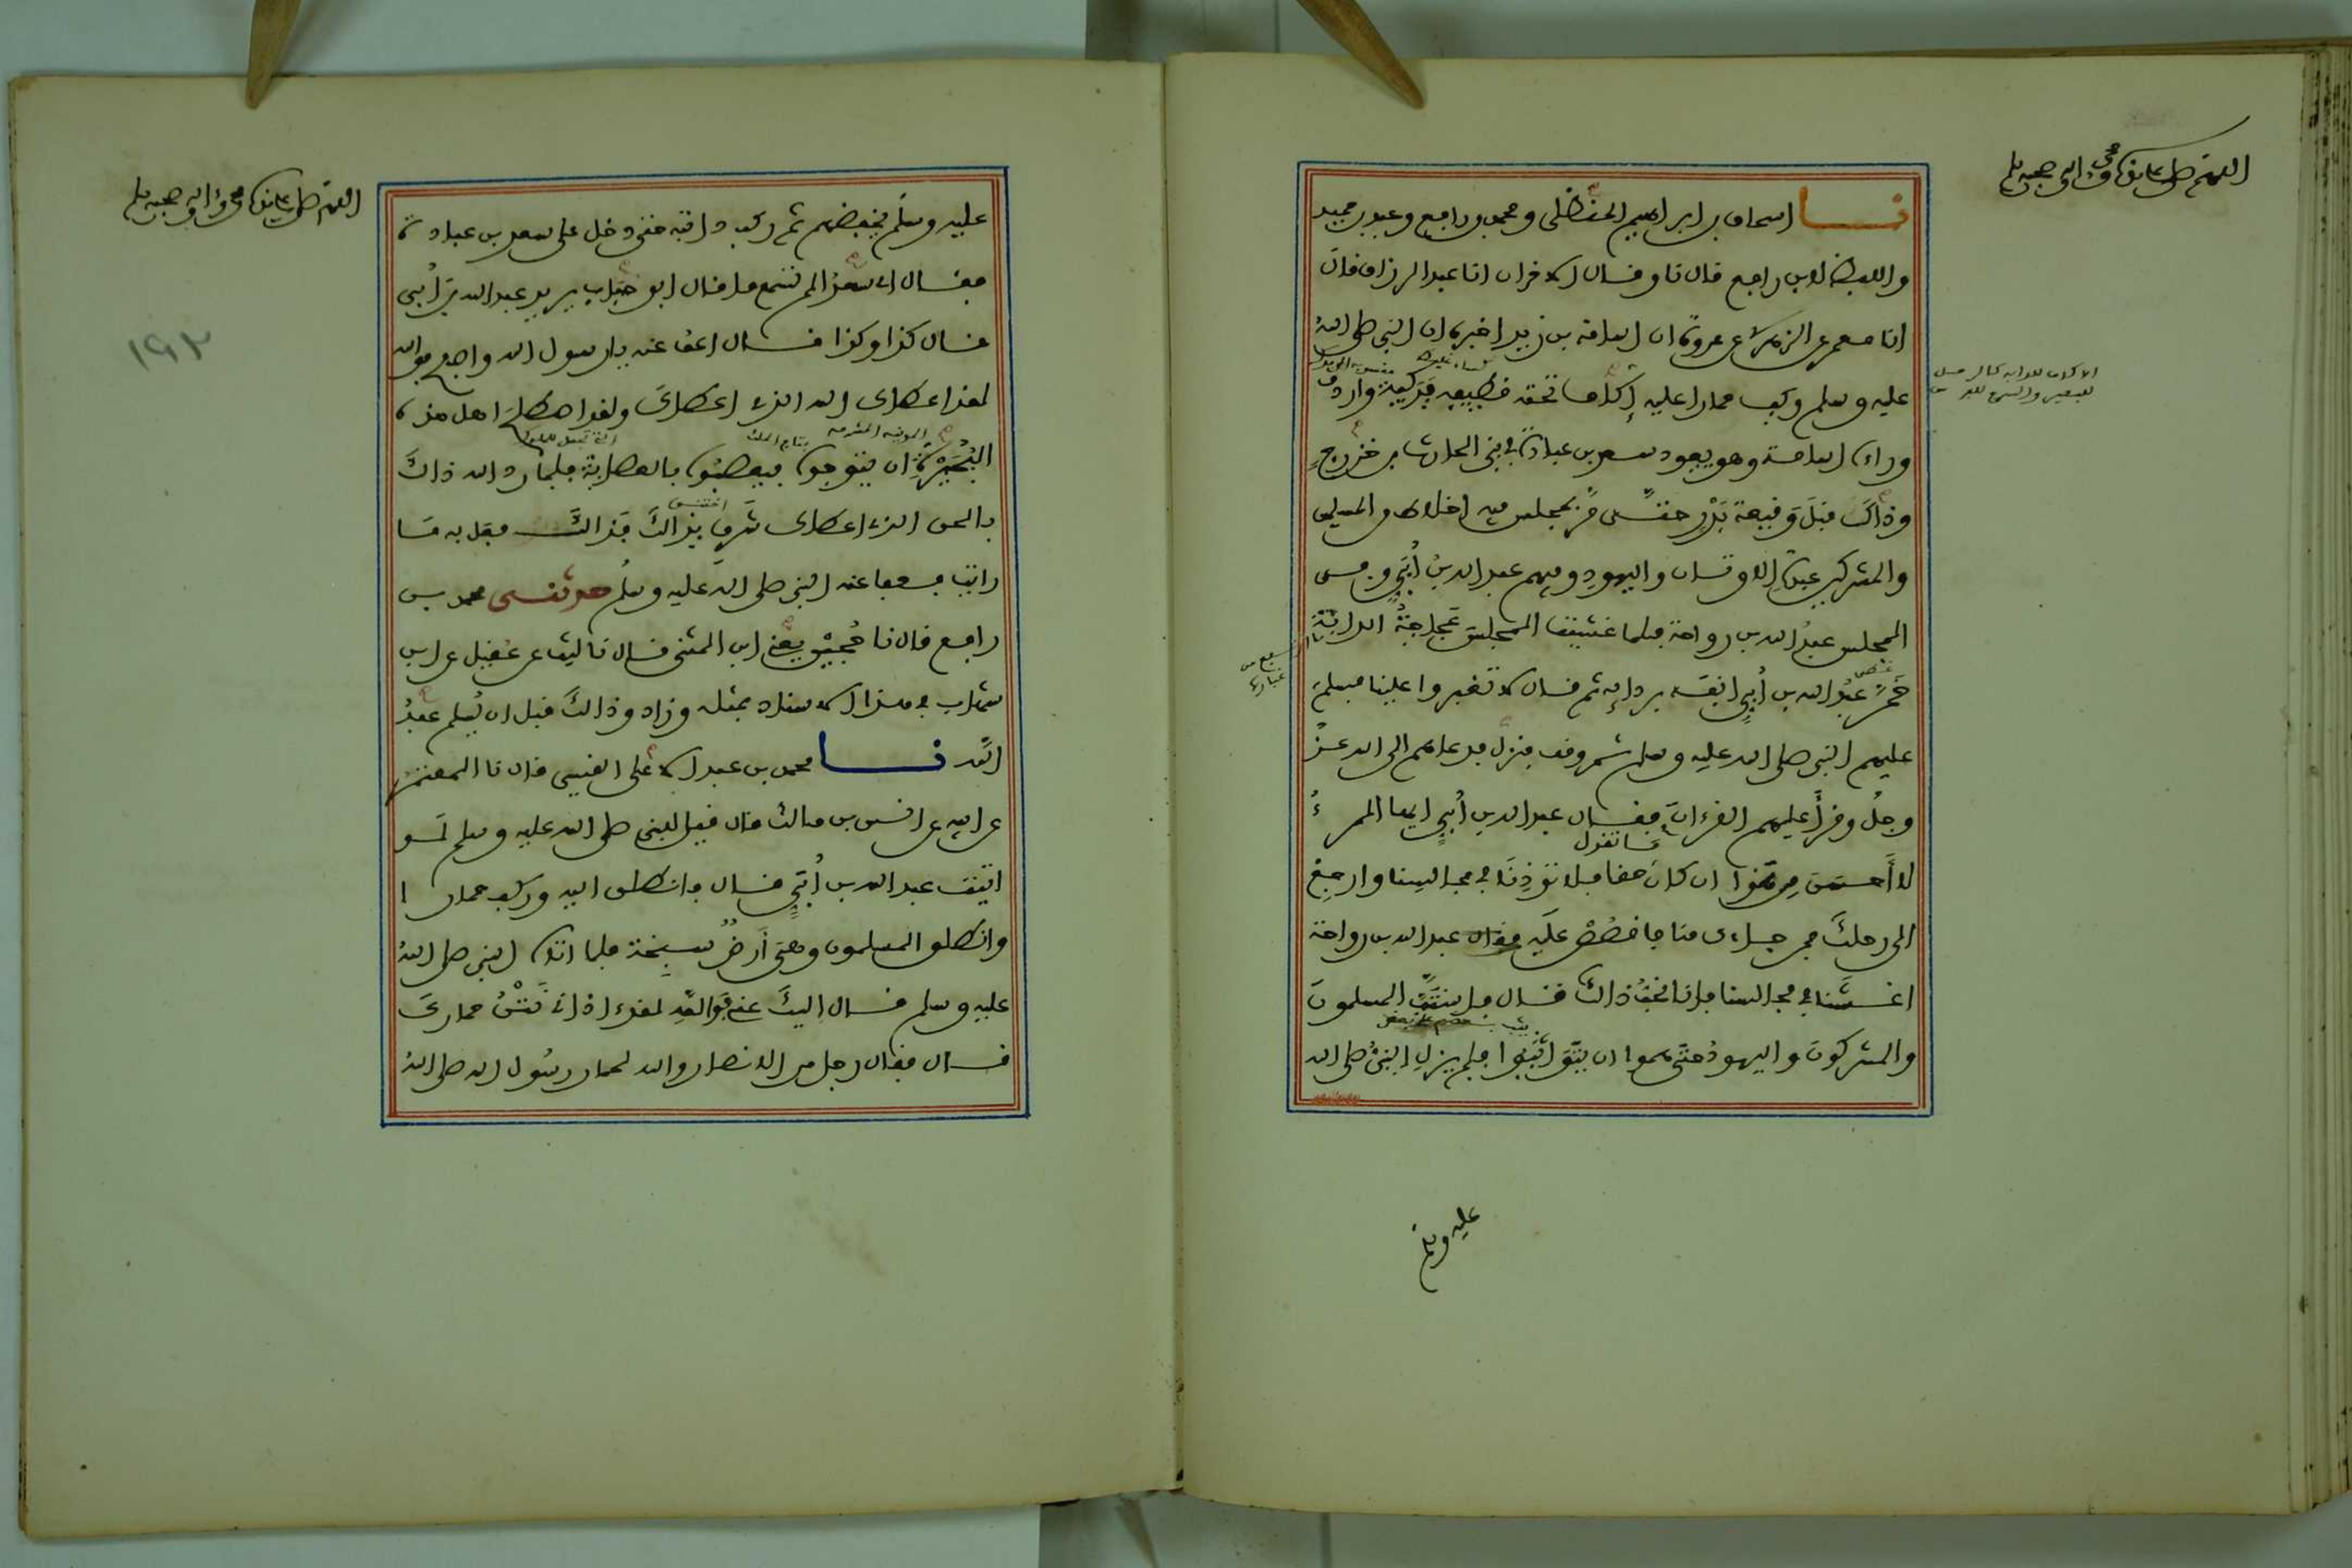 اللهم صل على سيدنا محمد واله وصحبه وسلم
نا اسحاق بن ابراهيم الحنظلي ومحمد بن رافع وعبد بن حميد
واللفظ لابن رافع قال نا وقال الاخران انا عبد الرزاق قال
انا معمر عن الزهري عن عروة ان اسامة بن زيد اخبره ان النبي صلى الله
عليه وسلم ركب حمارا عليه إكاف تحته قطيفة فدكية واردف
وراءه اسامة وهو يعود سعد بن عبادة في بني الحارث بن خزرج
وذاك قبل وقيعة بدر حتى مر بمجلس فيه اخلاط من المسلمين
والمشركين عبدة الاوثان واليهود وفيهم عبد الله بن أبي وفي
المجلس عبد الله بن رواحة فلما غشيت المجلس عجاجة الدابة
خمر عبد الله بن أبي انفه بردائه ثم قال لا تغبروا علينا فسلم
عليهم النبي صلى الله عليه وسلم ثم وقف فنزل فدعاهم الى الله عز
وجل وقرأ عليهم القرءان فقال عبد الله بن أبي ايها المرء
لا أحسن من هذا ان كان ما تقول حقا فلا توذنا في مجالسنا وارجع
الى رحلك فمن جاءك منا فاقصص عليه فقال عبد الله بن رواحة
اغشنا في مجالسنا فإنا نحب ذالك قال فاستب المسلمون
والمشركون واليهود حتى هموا ان يتواثبوا فلم يزل النبي صلى الله
عليه وسلم
اللهم صل على سيدنا محمد واله وصحبه وسلم
١٩٢
عليه وسلم يخفضهم ثم ركب دابته حتى دخل على سعد بن عبادة
فقال اي سعد الم تسمع ما قال ابو حباب يريد عبد الله بن أبي
قال كذا وكذا قال اعف عنه يا رسول الله واصفح فوالله
لقد اعطاك الله الذي اعطاك ولقد اصطلح اهل هذه
البحيرة ان يتوجوه فيعصبوه بالعصابة فلما رد الله ذاك
بالحق الذي اعطاك شرق بذالك فذالك فعل به ما
رايت فعفا عنه النبي صلى الله عليه وسلم حدثني محمد بن
رافع قال نا حجين يعني ابن المثنى قال نا ليث عن عقيل عن ابن
شهاب في هذا الاسناد بمثله وزاد وذالك قبل ان يسلم عبد
الله نا محمد بن عبد الاعلى القيسي قال نا المعتمر
عن ابيه عن انس بن مالك قال قيل للنبي صلى الله عليه وسلم لو
اتيت عبد الله بن أبي قال فانطلق اليه وركب حمارا
وانطلق المسلمون وهي أرض سبخة فلما اتاه النبي صلى الله
عليه وسلم قال اليك عني فوالله لقد اذاني نتن حمارك
قال فقال رجل من الانصار والله لحمار رسول الله صلى الله